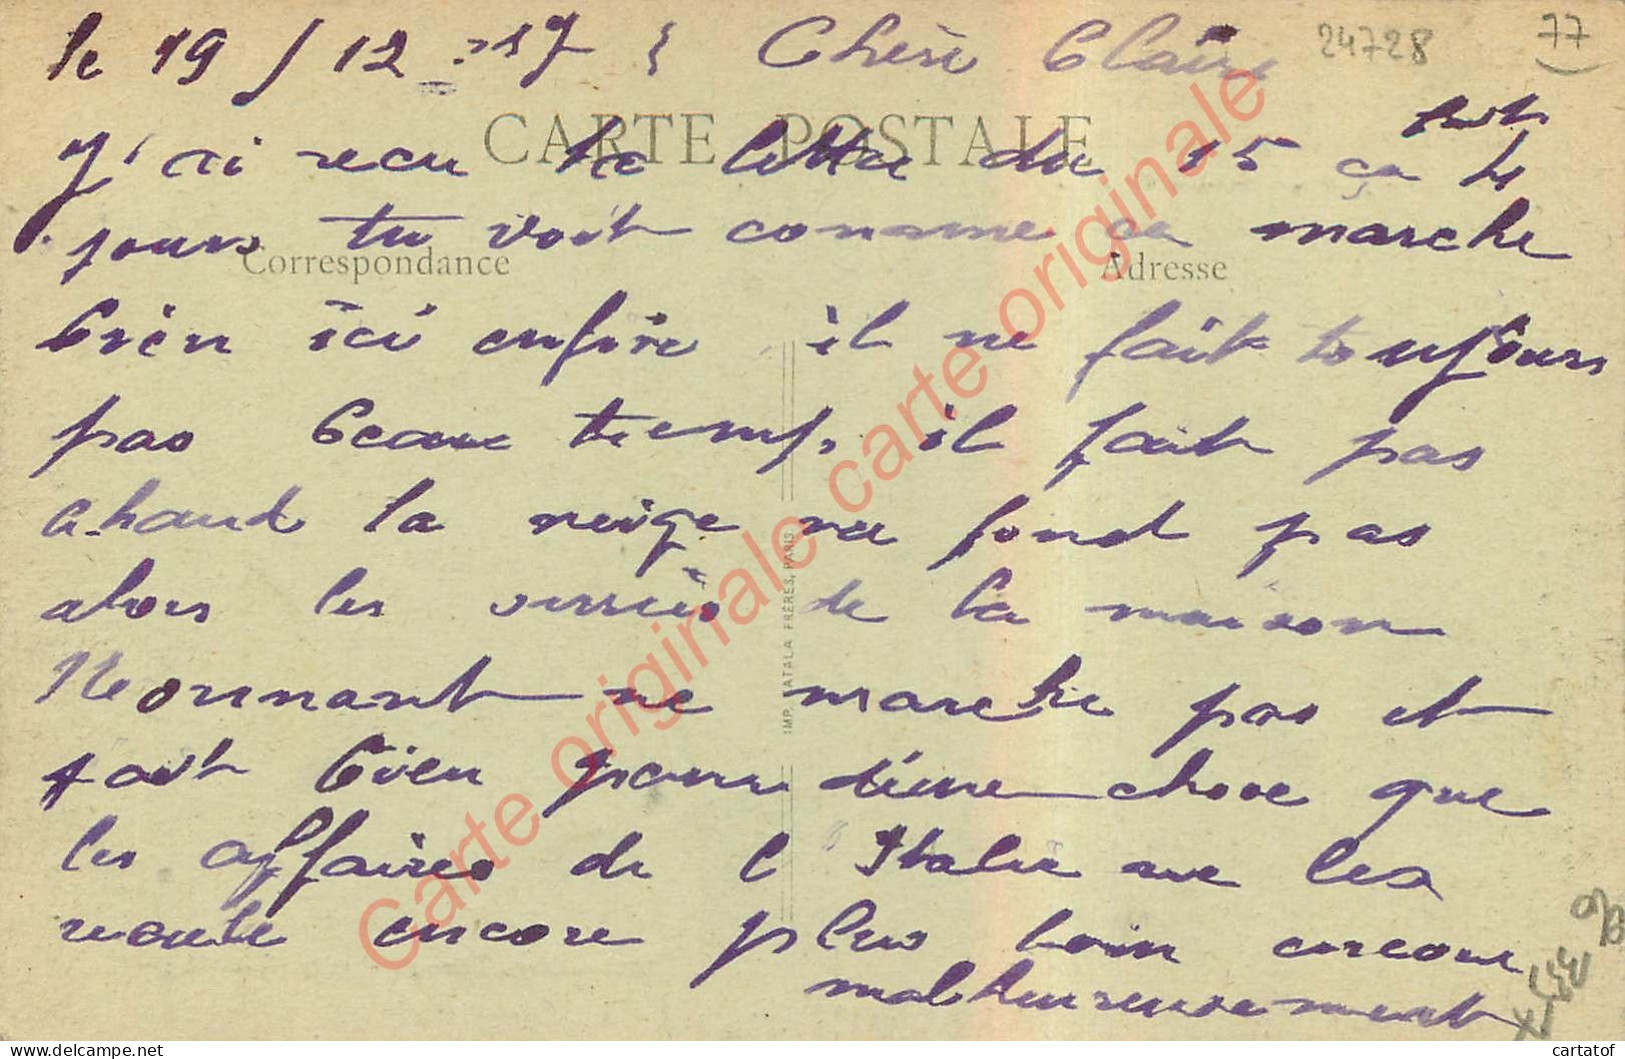 le 19 / 12 - 17 Chère Claire
24728
77
CARTE POSTALE
J'ai recu ta lettre du 15 ça 4
jours tu voit comme ca marche
Correspondance
Adresse
bien ici enfin il ne fait toujours
pas beau temp. il fait pas
chaud la neige ne fond pas
alors les de la maison
ne marche pas et
fait bien pour chose que
les affaires de l'Italie ne les
recule encore plus loin encore
malheureusement
IMP. CATALA FRÈRES, PARIS
Carte originale carte originale carte originale
delcampe.net
cartatof